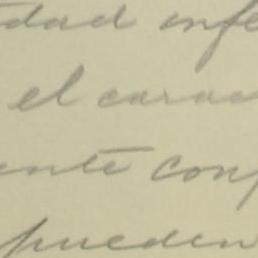 dad infe
el carac
ente conf
pueden